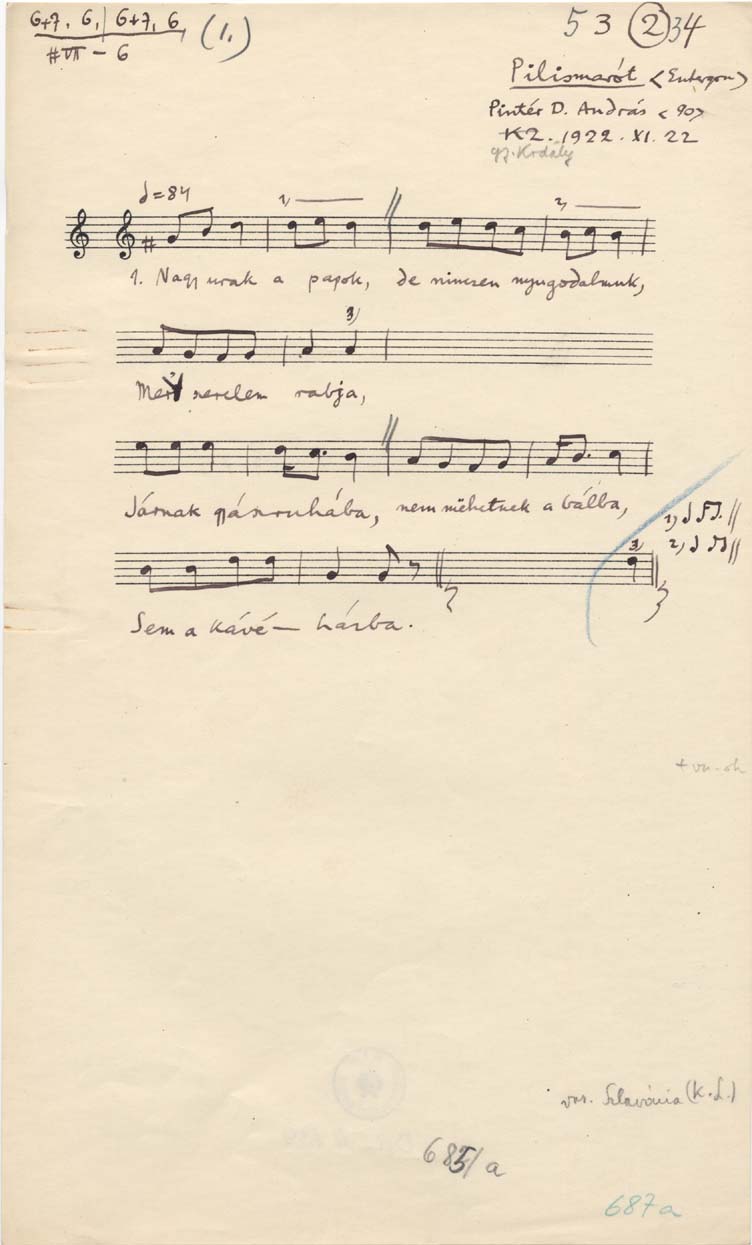 6+7, 6, 6+7, 6 (1.)
#VII - 6
5 3 2 34
Pilismarót <Esztergom>
Pintér D. András <90>
KZ. 1922. XI. 22
gy. Kodály
♩=84
1) 2)
1. Nagy urak a papok, de nincsen nyugodalmuk,
3)
Mert szerelem rabja,
Járnak gyászruhába, nem mehetnek a bálba,
1)
2)
3)
Sem a kávé— házba.
var. Szlavónia (K. L.)
685/a
687a